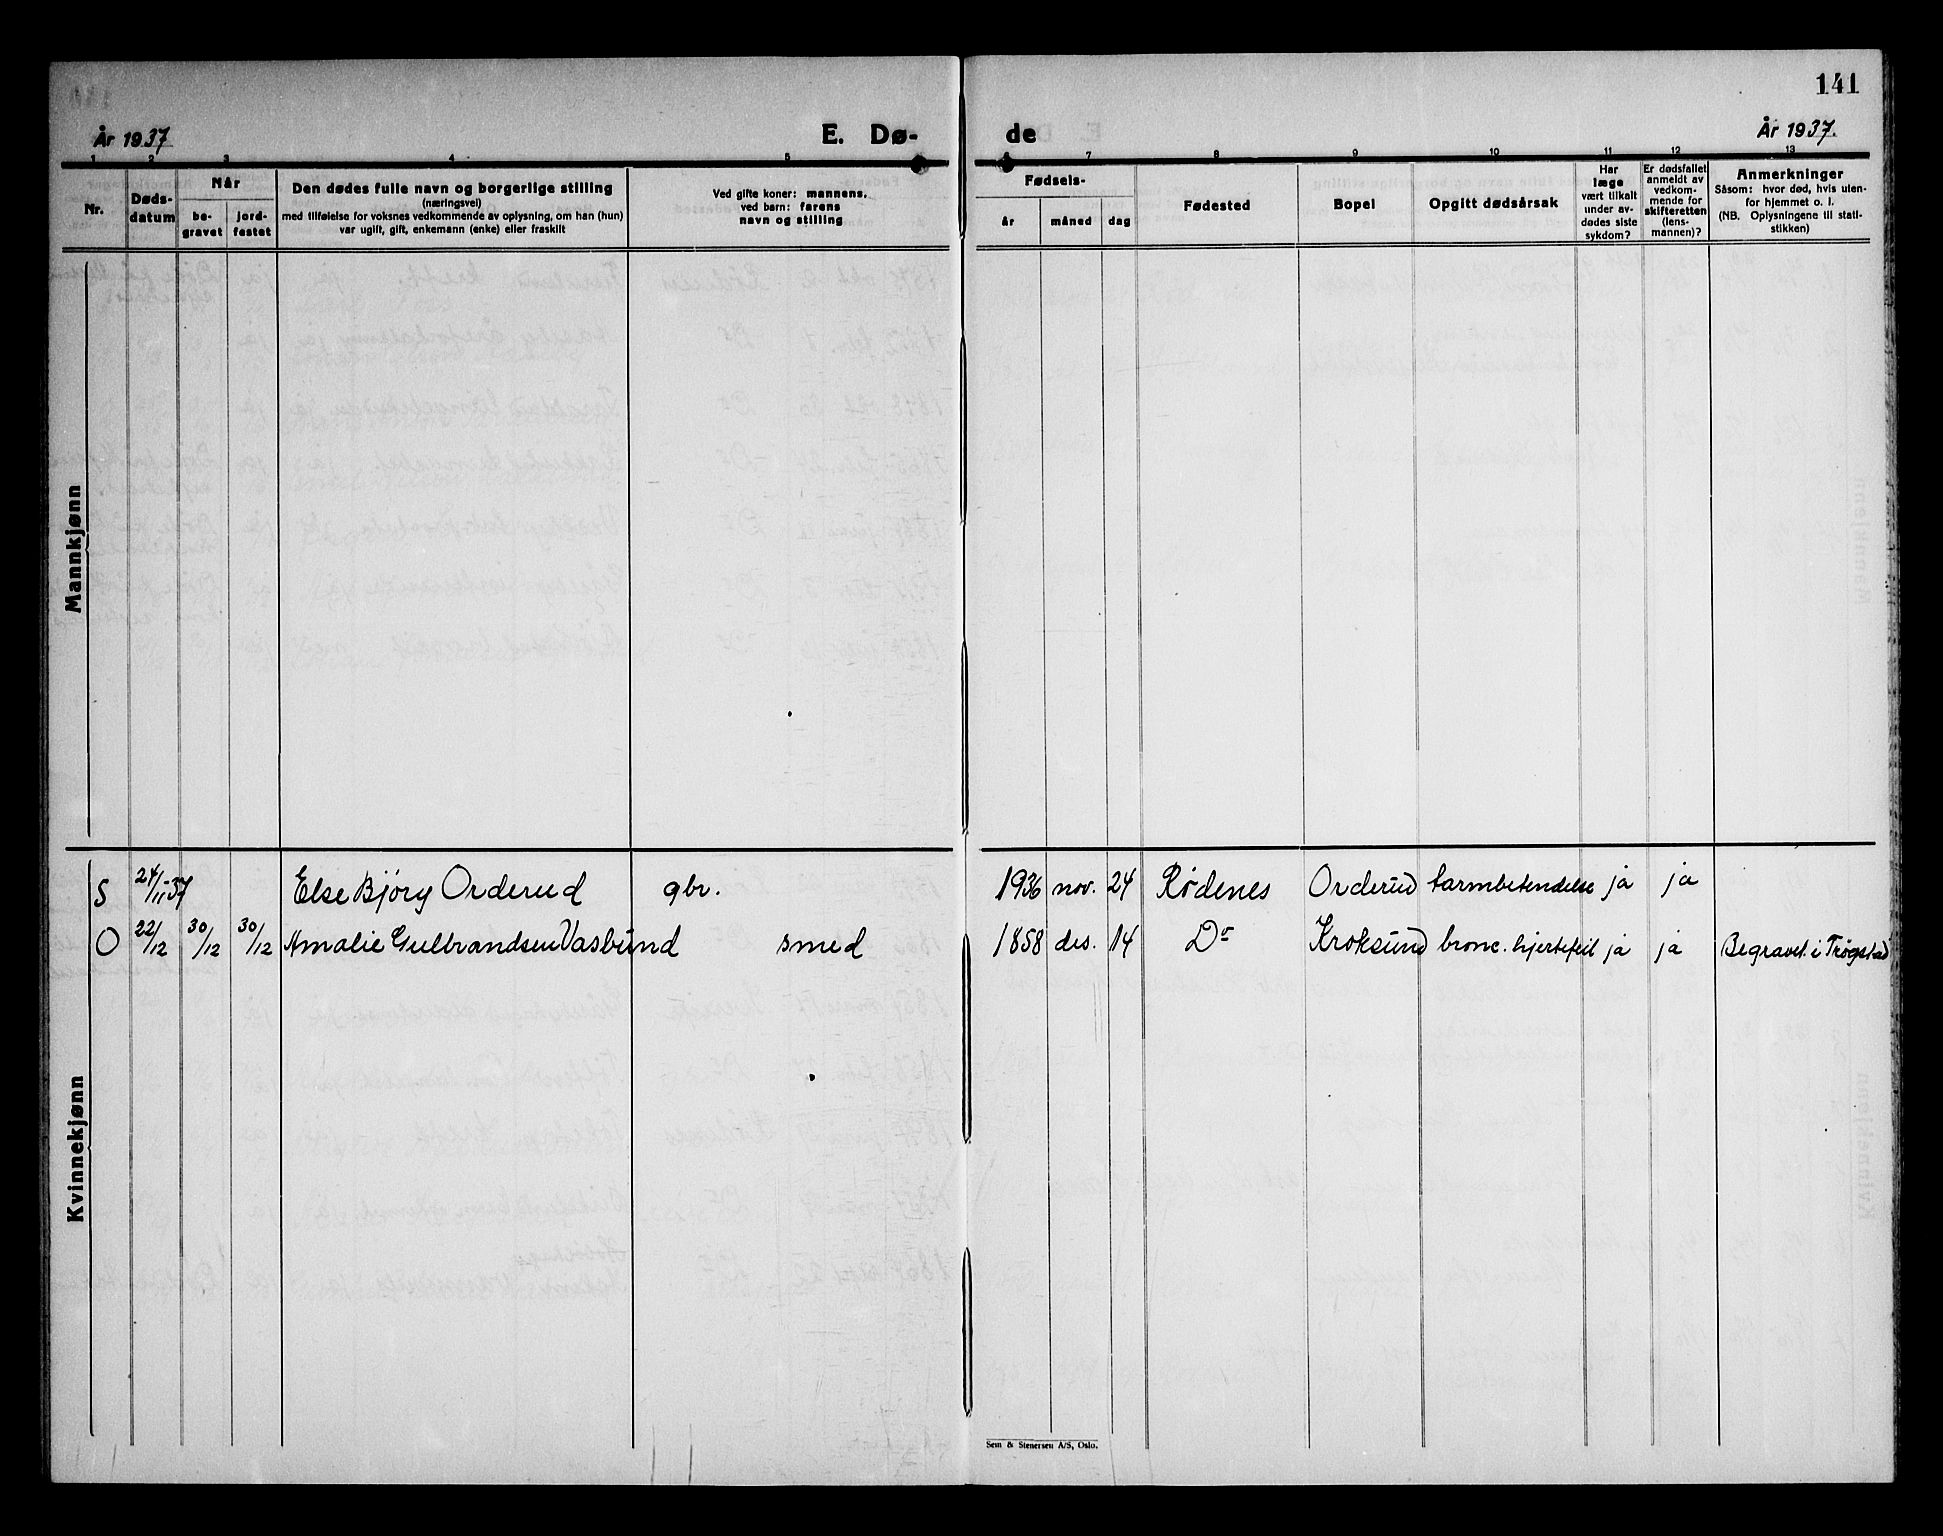 141
År 1937
E. Dø-
de
År 1937.
1 2 3 4 5
6 7 8 9 10 11 12 13
Nr.
Døds-
datum
Når
be-
gravet
jord-
festet
Den dødes fulle navn og borgerlige stilling
(næringsvei)
med tilføielse for voksnes vedkommende av oplysning, om han (hun)
var ugift, gift, enkemann (enke) eller fraskilt
Ved gifte koner: mannens.
ved barn: farens
navn og stilling
Fødsels-
år
måned
dag
Fødested
Bopel
Opgitt dødsårsak
Har
læge
vært tilkalt
under av-
dødes siste
sykdom?
Er dødsfallet
anmeldt av
vedkom-
mende for
skifteretten
(lens-
mannen)?
Anmerkninger
Såsom: hvor død, hvis uten-
for hjemmet o. l.
(NB. Oplysningene til stati-
stikken)
Mannkjønn
Kvinnekjønn
S 24/11-37 Else Bjørg Orderud gbr. 1936 nov. 24 Rødenes Orderud tarmbetendelse ja ja
O 22/12 30/12 30/12 Amalie Gulbrandsen Vasbund smed 1858 des. 14 Do Kroksund bronc. hjertefeil ja ja Begravet i Trøgstad
Sem & Stenersen A/S, Oslo.